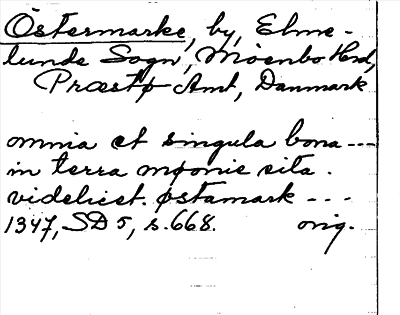 Östermarke, by, Elme-
lunde Sogn, Mönbo Hrd,
Præstø Amt, Danmark
omnia et singula bona ---
in terra møonie sita.
videlicet. østamark ---
1347, SD 5, s. 668. orig.